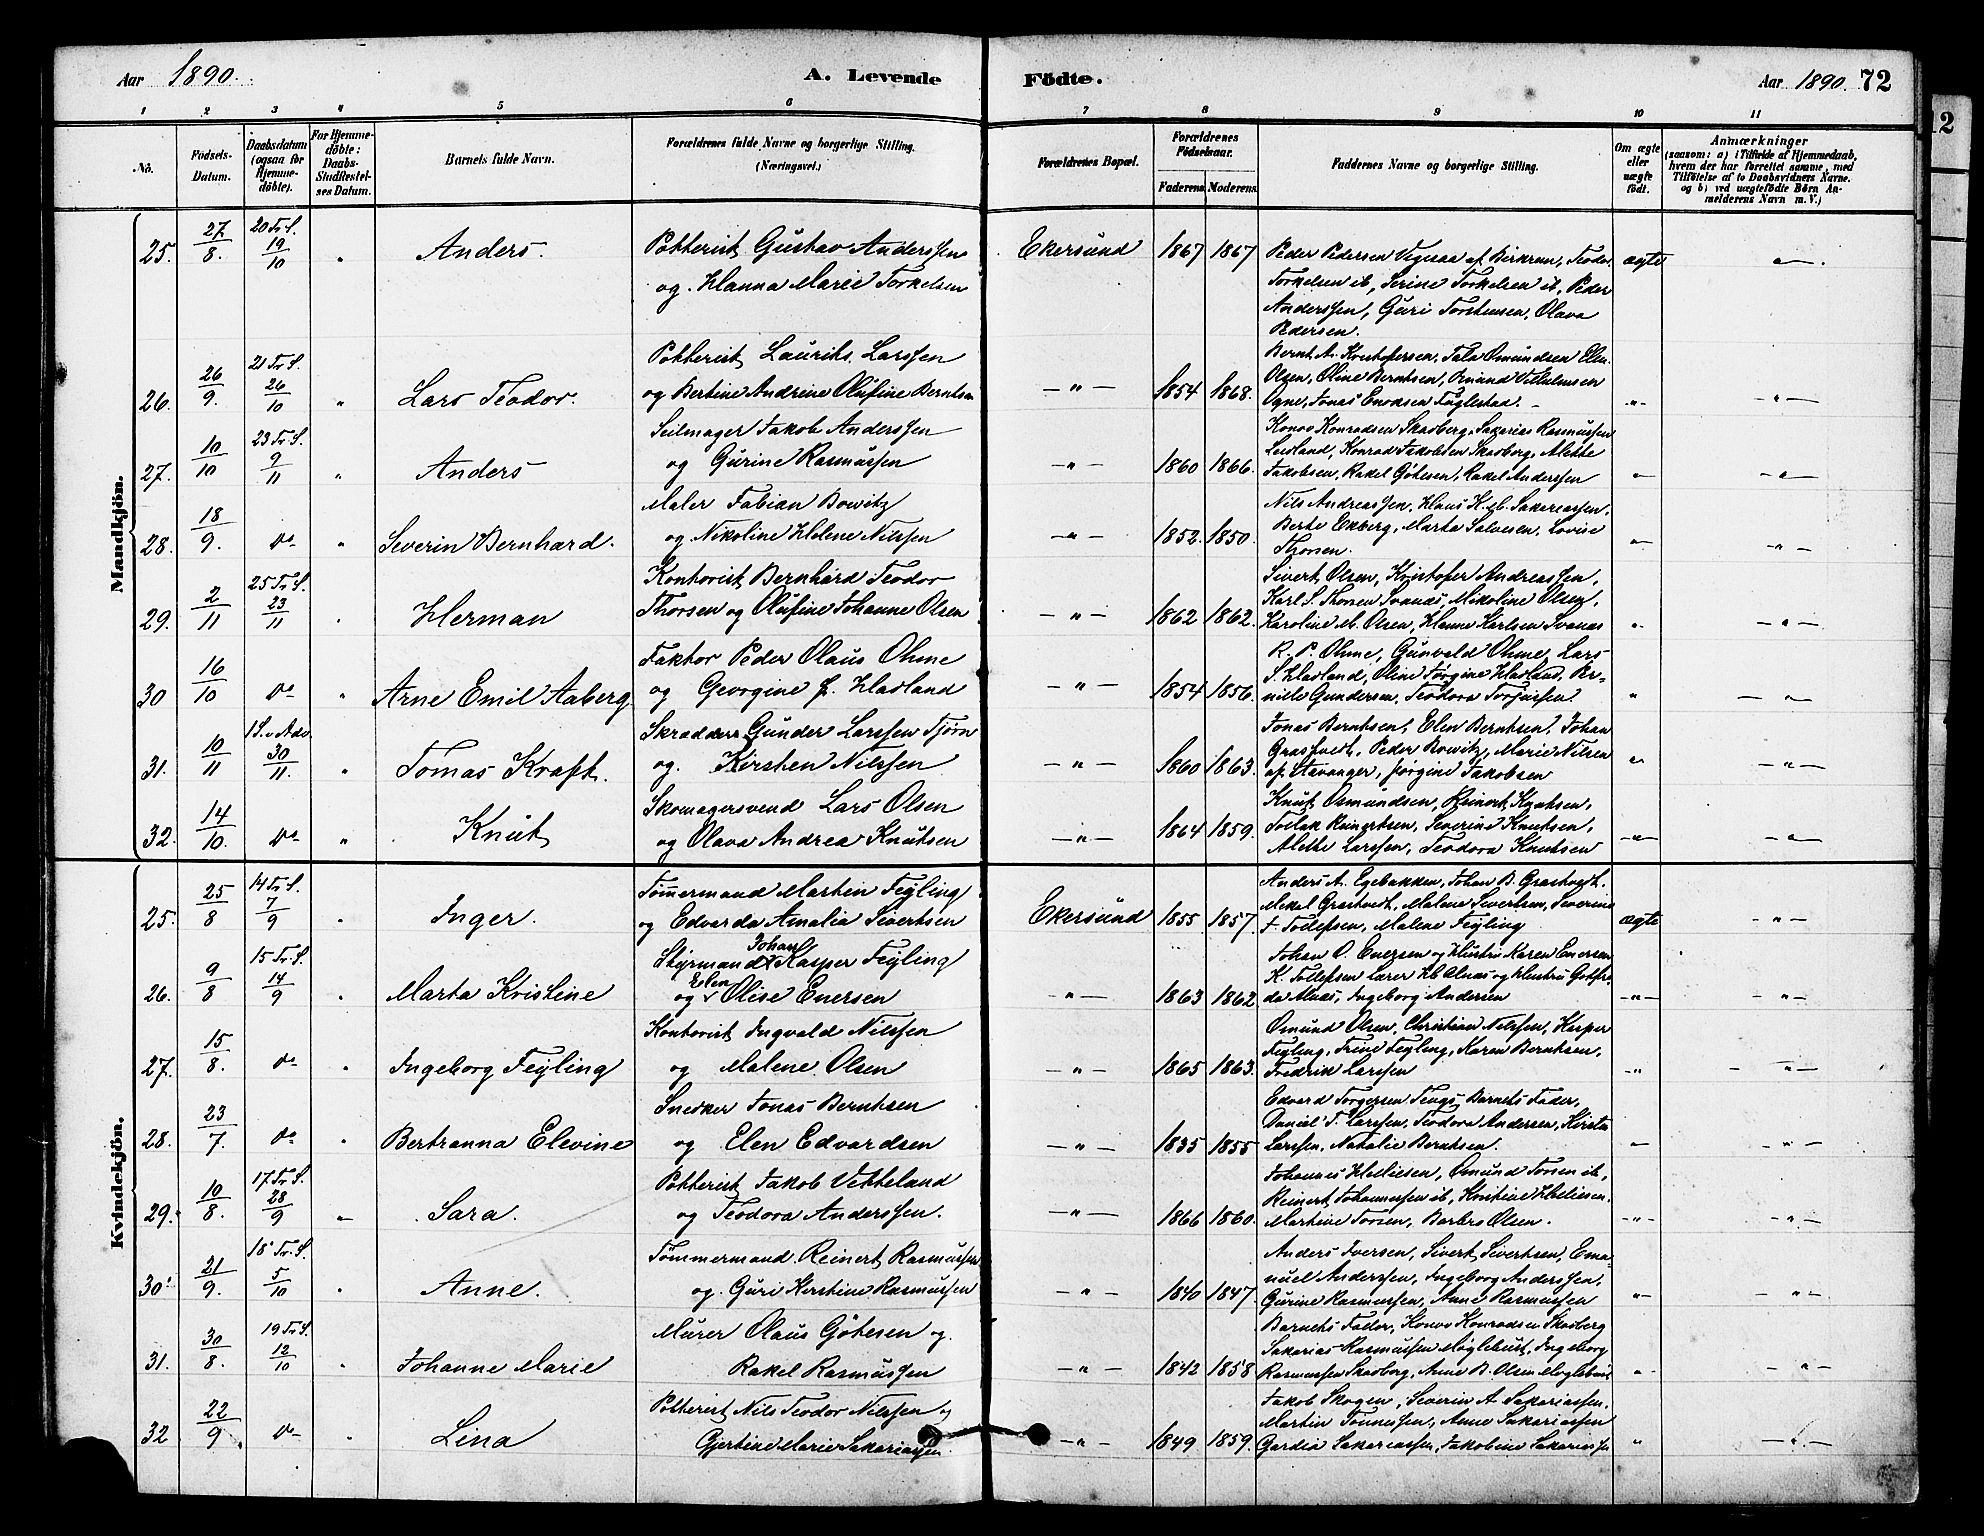 Aar 1890.
A. Levende Födte.
Aar 1890. 72
1 2 3 4 5 6 7 8 9 10 11
No.
Födsels-Datum.
Daabsdatum (ogsaa for Hjemmedöbte).
For Hjemmedöbte: Daabs-Stadfæstelses Datum.
Barnets fulde Navn.
Forældrenes fulde Navne og borgerlige Stilling. (Næringsvei.)
Forældrenes Bopæl.
Forældrenes Födselsaar.
Faderens. Moderens.
Faddernes Navne og borgerlige Stilling.
Om ægte eller uægte födt.
Anmærkninger
(saasom: a) i Tilfælde af Hjemmedaab, hvem der har forrettet samme, med Tilföielse af to Daabsvidners Navne. og b) ved uægtefödte Börn Anmelderens Navn m. V.)
Mandkjön.
25. 27/8. 20 Tr. S. 19/10 " Anders. Potterist Gustav Anderssen
og Hanna Marie Torkelsen
Ekersund 1867 1867 Peder Pedersen Vegnaa af Birkrem, Teodor
Torkelsen ib, Serine Torkelsen ib, Peder
Anderssen, Guri Torstensen, Olava
Pedersen. ægte "
26. 26/9. 21 Tr. S. 26/10 " Lars Teodor. Potterist Laurits Larssen
og Bertine Andrine Olufine Berntsen
" 1854 1868. Bernt A. Kristofersen, Tala Omundsen Elen
Olsen, Oline Berntsen, Omund Vilhelmsen
Ogne, Jonas Enoksen Fuglestad. " "
27. 10/10 23 Tr. S. 9/11 " Anders Seilmager Jakob Anderssen
og Gurine Rasmussen
" 1860 1866. Konow Konradsen Skadberg, Sakarias Rasmussen
Leidland, Konrad Jakobsen Skadberg, Alette
Jakobsen, Rakel Götesen, Rakel Anderssen " "
28. 18/9. do " Severin Bernhard. Maler Fabian Bowitz
og Nikoline Helene Nilssen
" 1852. 1850. Nils Andreassen, Hans K. M. Sakariassen,
Berte Ekberg, Marta Salvesen, Lovise
Thorsen. " "
29. 2/11 25 Tr. S. 23/11 " Herman Kontorist Bernhard Teodor
Thorsen og Olufine Johanne Olsen
" 1862 1862. Sivert Olsen, Kristofer Andreassen,
Karl S. Thorsen Svanæs, Nikoline Olsen,
Karoline M. Olsen, Hanne Karlsen Svanæs " "
30 16/10 do " Arne Emil Aaberg. Faktor Peder Olaus Ohme
og Georgine J. Hadland
" 1854 1856. R. P. Ohme, Gunvald Ohme, Lars
S. Hadland, Oline Jørgine Hadland, Per-
nille Gundersen, Teodora Torjussen. " "
31. 10/11 1 S. i Adv. 30/11. " Tomas Kraft. Skrædder Gunder Larssen Tjørn
og Kirsten Nilssen
" 1860 1863. Jonas Berntsen, Elen Berntsen, Johan
Grastvedt, Peder Bowitz, Marie Nilsen
af Stavanger, Jørgine Jakobsen " "
32. 14/10. do " Knut Skomagersvend Lars Olsen
og Olava Andrea Knutsen
" 1864 1859. Knut Osmundsen, Reinert Knutsen,
Tollak Reinertsen, Severine Knutsen,
Alette Larssen, Teodora Knutsen " "
Kvindekjön.
25. 25/8 14 Tr. S. 7/9 " Inger. Tømmermand Martin Feyling
og Edvarda Amalia Sivertsen
Ekersund 1855 1857. Anders A. Egebakken, Johan B. Grastvedt.
Mekal Grastvedt, Malene Sivertsen, Severine
T. Tollefsen, Malene Feyling ægte "
26. 9/8 15 Tr. S. 14/9 " Marta Kristine Styrmand Johan Kasper Feyling
og Elen Olise Enersen
" 1863 1862 Johan O. Enersen og Hustru Karen Enersen
K. Tollefsen Lærer Alnæs og Hustru
Alnæs, Ingeborg Andersen " "
27. 15/8. do " Ingeborg Feyling Kontorist Ingvald Nilssen
og Malene Olsen
" 1865 1863. Omund Olsen, Christian Nilssen, Kasper
Feyling, Trine Feyling, Karen Berntsen,
Fredrik Larssen " "
28. 23/7. do " Bertranna Elevine Snedker Jonas Berntsen
og Elen Edvardsen
" 1835 1855 Edvard Torgersen Tengs, Barnets Fader,
Daniel T. Larssen, Teodora Andersen, Kirsten
Larssen, Natalie Berntsen. " "
29. 10/8. 17. Tr. S. 28/9 " Sara. Potterist Jakob Vetteland
og Teodora Anderssen.
" 1866 1860. Johannes Heliesen, Omund Torsen ib,
Reinert Johannessen ib, Kristine Heliesen.
Martine Torsen, Barbro Olsen. " "
30. 21/9. 18 Tr. S. 5/10 " Anne. Tømmermand Reinert Rasmussen
og Guri Kirstine Rasmussen
" 1840 1847. Anders Iversen, Sivert Sivertsen, Ema-
nuel Anderssen, Ingeborg Anderssen,
Gurine Rasmussen, Anne Rasmussen " "
31. 30/8. 19 Tr. S. 12/10 " Johanne Marie Murer Olaus Götesen og
Rakel Rasmussen
" 1842 1858 Barnets Fader, Konow Konradsen Skadberg
Sakarias Rasmussen Møglebust, Ingeborg
Rasmussen Skadberg, Anne B. Olsen Møglebust " "
32 22/9. do " Lina Potterist Nils Teodor Nilssen og
Gjertine Marie Sakariassen
" 1849 1859. Jakob Skogen, Severin A. Sakariassen.
Martin Tønnessen, Anne Sakariassen
Gardia Sakariassen, Jakobine Sakariassen " "
12